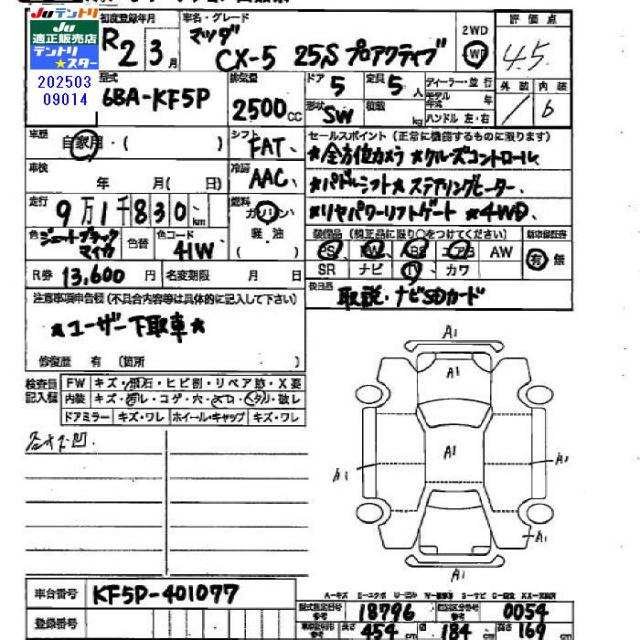 Juテントリ
Ju
適正販売店
テントリ
スター
202503
09014
初度登録年月
R2年3月
車名・グレード
マツダ
CX-5 25S プロアクティブ
2WD
4WD
評価点
4.5
外装 内装
/ b
型式
6BA-KF5P
排気量
2500cc
ドア 5
定員 5人
形状 SW
積載 kg
ディーラー・並行
モデル年式 年
ハンドル 左・右
車歴
自家用・( )
シフト
FAT
セールスポイント(正常に機能するものに限ります)
★全方位カメラ ★クルーズコントロール
★パドルシフト★ステアリングヒーター
★リヤパワーリフトゲート ★4WD
車検
年 月( 日)
冷房
AAC
走行
9万1千830km
燃料
ガソリン
軽・油
( )
色
ジェットブラックマイカ
色替
色コード
41W
装備品(純正品に限り○をつけてください)
PS PW ABS エアB AW
SR ナビ TV カワ
新車保証書
有 無
R券 13,600円
名変期限 月 日
後日品
取説・ナビSDカード
注意事項申告欄(不具合内容等は具体的に記入して下さい)
★ユーザー下取車★
修復歴 有(箇所 )
検査員記入欄
FW キズ・飛石・ヒビ割・リペア跡・X要
内装 キズ・スレ・コゲ・穴・ヘコ・ヘタリ・破レ
ドアミラー キズ・ワレ ホイール・キャップ キズ・ワレ
A1
A1
A1
A1
A1
A1
A1
A1
車台番号 KF5P-401077
登録番号
型式指定番号 18796
類別区分番号 0054
長さ 454cm
幅 184cm
高さ 169cm